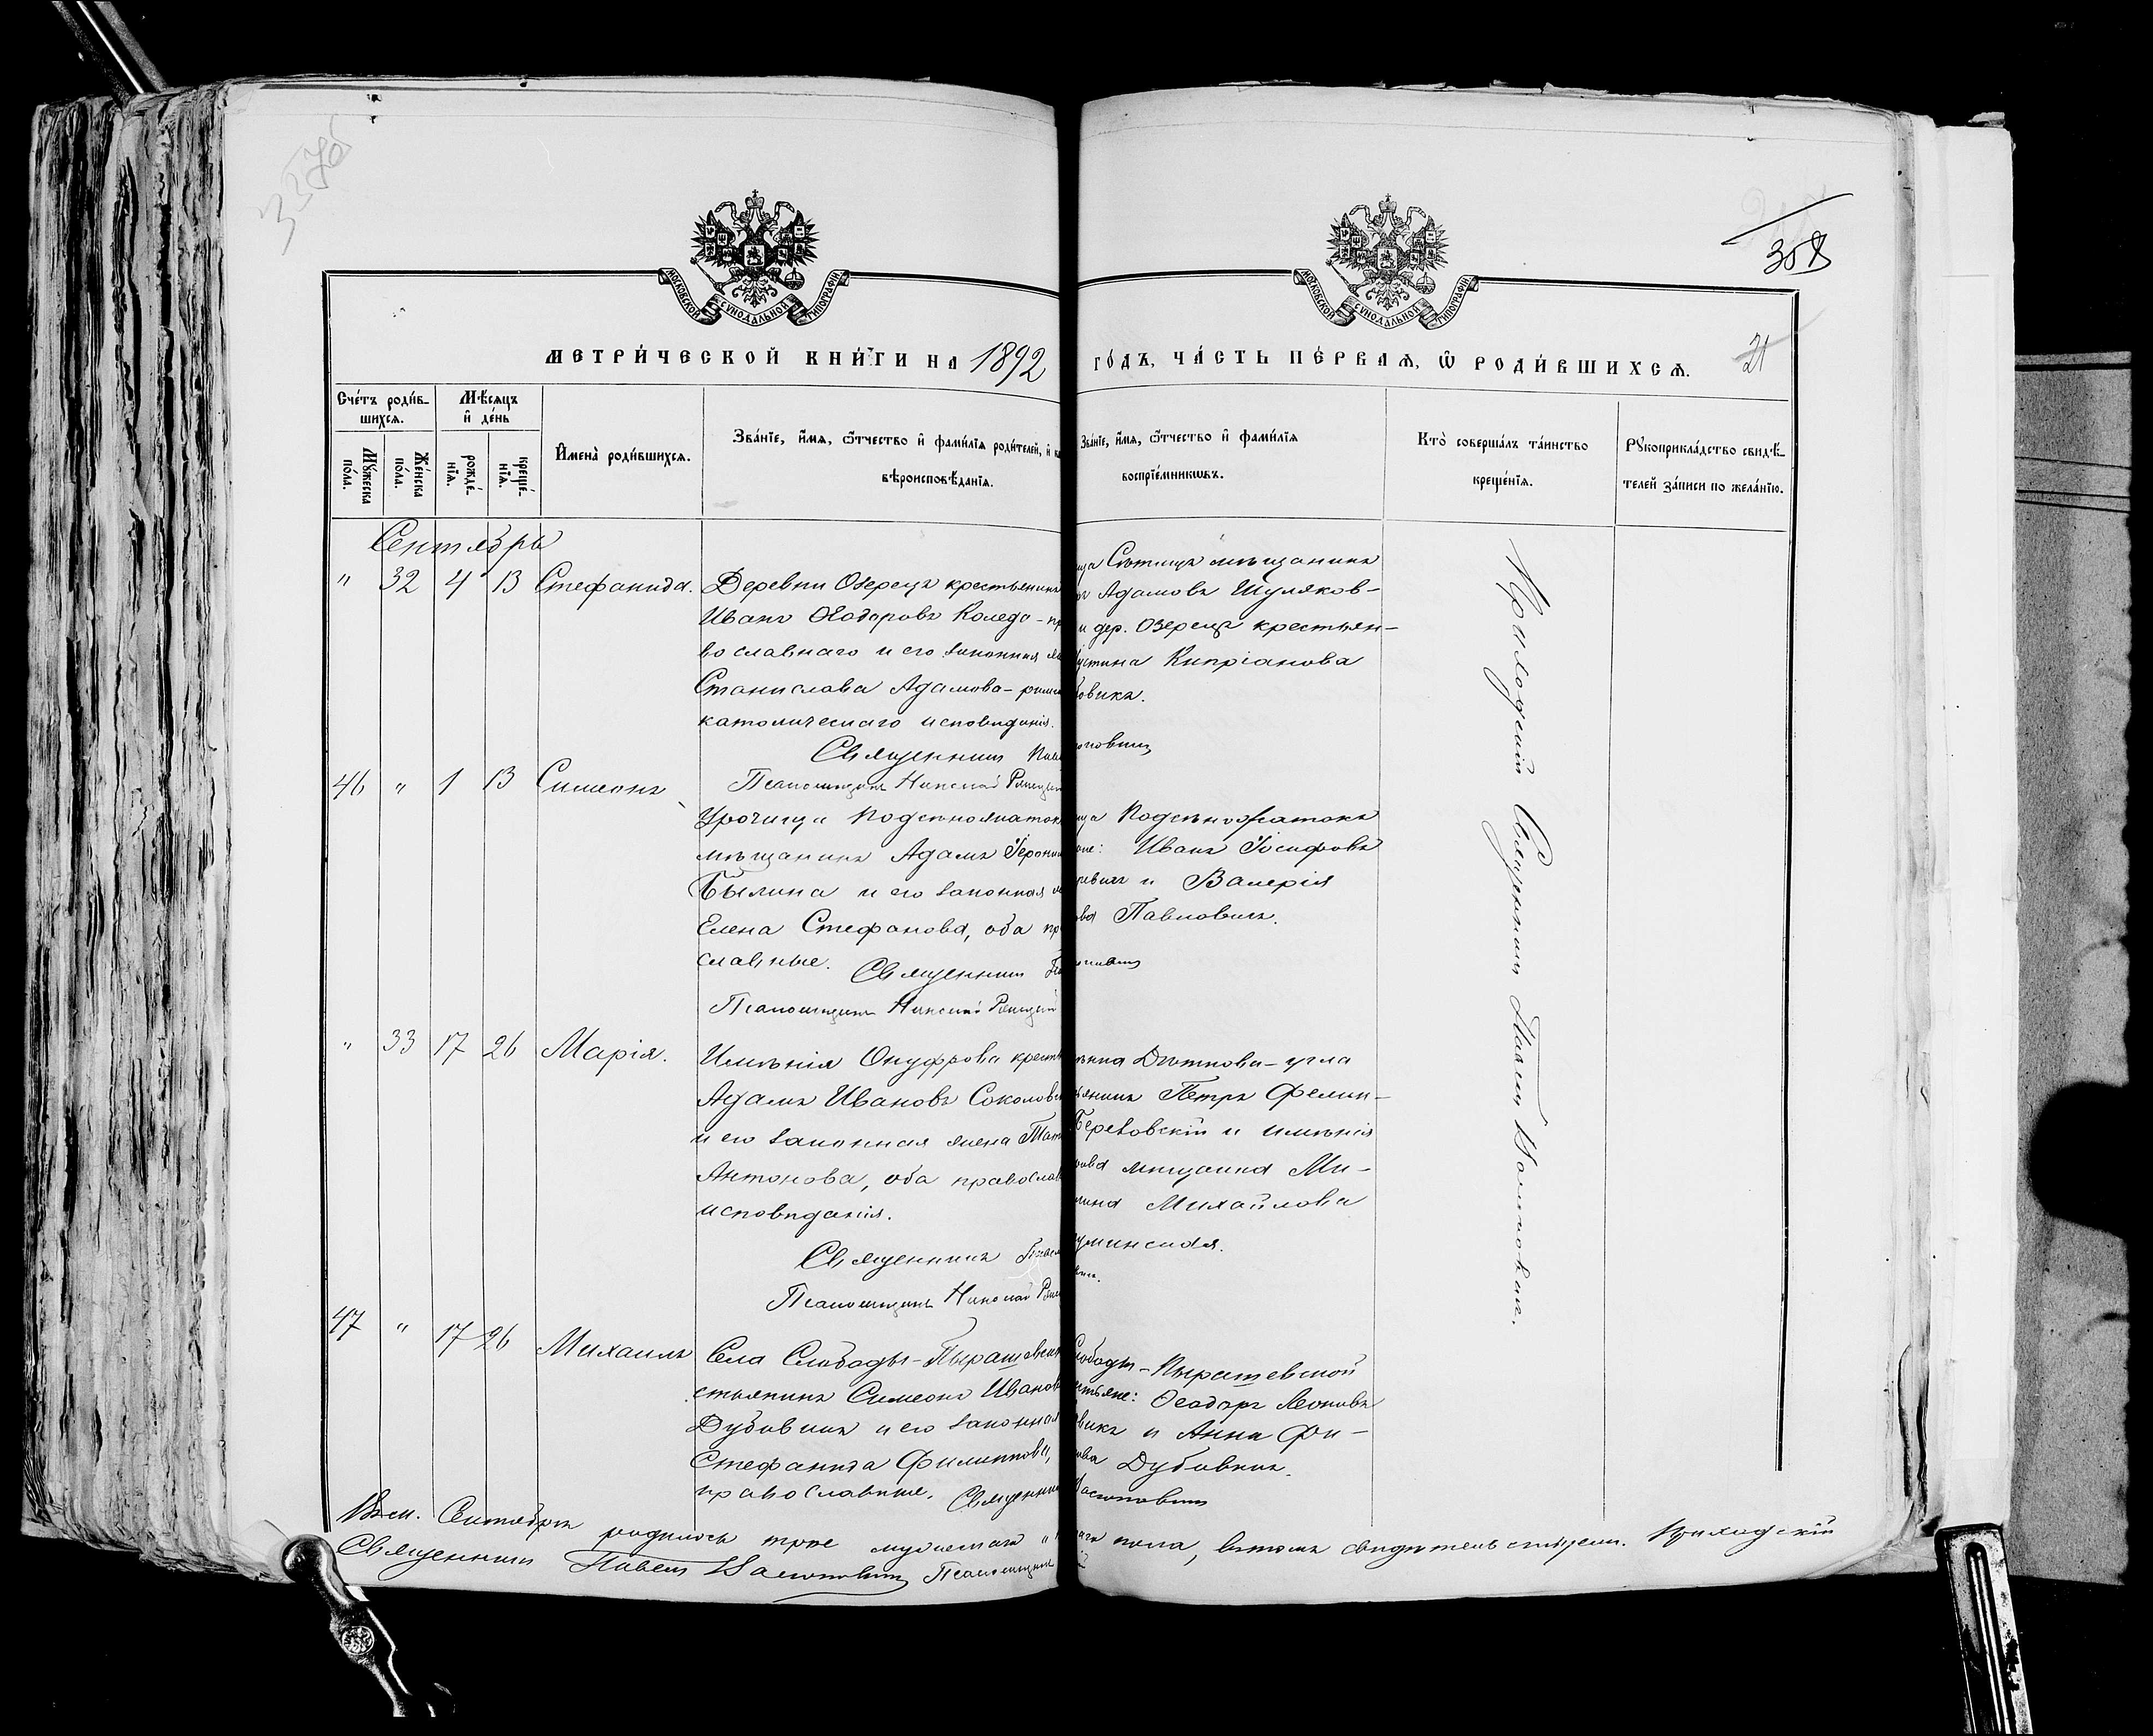 3576
МОСКОВСКОЙ СУНОДАЛЬНОЙ ТИПОГРАФІИ
МОСКОВСКОЙ СУНОДАЛЬНОЙ ТИПОГРАФІИ
358
МЕТРИ́ЧЕСКОЙ КНИ́ГИ НА 1892
ГО́ДЪ, ЧА́СТЬ ПЕ́РВАѦ, Ѽ РОДИ́ВШИХСѦ.
21
Сче́тъ роди́в-
шихсѧ.
Мѣ́сѧцъ
и҆ де́нь
Мꙋ́жеска
по́ла.
Же́нска
по́ла.
рожде́-
нїѧ.
креще́-
нїѧ.
И҆мена̀ роди́вшихсѧ.
Зва́нїе, и҆́мѧ, ѻ҆́тчество и҆ фами́лїѧ роди́телей, и҆
вѣроисповѣ́данїѧ.
Зва́нїе, и҆́мѧ, ѻ҆́тчество и҆ фами́лїѧ
воспрїе́мникѡвъ.
Кто̀ соверша́лъ та́инство
креще́нїѧ.
Рꙋкоприкла́дство свидѣ́-
телей за́писи по жела́нїю.
Сентябрь
" 32 4 13 Стефанида.
Деревни Озерецъ крестьянинъ
Иванъ Ѳеодоровъ Коледа - пра
вославнаго и его законная же
Станислава Адамова - римско
католическаго исповѣданія.
Священникъ
Псаломщикъ Николай
Сѣтище мѣщанинъ
Адамовъ Шуляков-
и дер. Озерецъ крестьян-
устина Кипріанова
овикъ.
46 " 1 13 Симеонъ
Урочища
мѣщанинъ Адамъ
Былина и его законная
Елена Стефанова, оба пр
славные. Священникъ
Псаломщикъ Николай
Иванъ Іосифовъ
евичъ и Валерія
ова Павловичъ.
" 33 17 26 Марія.
Имѣнія Онуфрова кресть
Адамъ Ивановъ Соколовск
и его законная жена Тать
Антонова, оба православ
исповѣданія.
Священникъ
Псаломщикъ Николай
янинъ Петръ Фелик-
Березовскій и имѣнія
ова мѣщанка Ми-
Михайлова
47 " 17 26 Михаилъ
Села Слободы-Пырашевск
стьянинъ Симеонъ Иванов
Дубовикъ и его законная
Стефанида Филиппова,
православные. Священникъ
лободы-Пырашевской
стьяне: Ѳеодоръ Леоновъ
овикъ и Анна Фи-
ова Дубовикъ.
Приходскій Священникъ Павелъ
Въ м. Сентябрѣ родилось трое мужескаго
пола, въ томъ свидѣтельствуемъ. Приходскій
Священникъ Павелъ Псаломщикъ